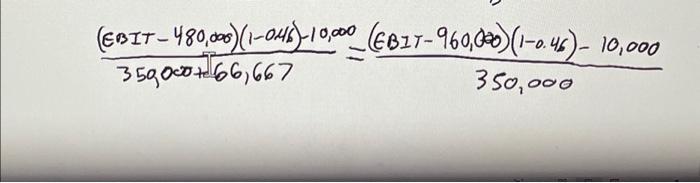 (EBIT-480,000)(1-0.46)-10,000 = (EBIT-960,000)(1-0.46)- 10,000
350,000+166,667 350,000